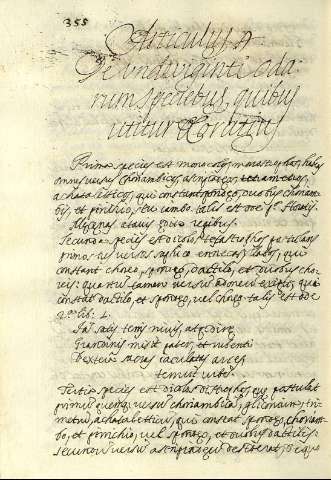 355
Articulus 4
De undeviginti oda-
rum speciebus, quibus
utitur Horatius
Prima species est monocolos monostrophos, habet
omnes versus choriambicos, asclepiadeos
achatalecticos, qui constant spondeo, duobus choriam-
bis, et pirrichio, seu iambo. talis est ode 1ª
atavis edite regibus.
Secunda species est dicolos tetrastrophos
primos tres versus saphicos endecasyllabos, qui
constant choreo, spondeo, dactilo, et duobus cho-
reis: quartus tamen versus adonicus qui
constat dactilo, et spondeo, vel choreo. talis est ode
2ª lib. 1.
Iam satis terris nivis, atque dirae
Grandinis misit pater, et rubenti
Dextera sacras iaculatus arces
terruit urbem.
Tertia species est dicolos distrophos, quae postulat
primum versum choriambicum, gliconium, tri-
metrum, achatalecticum, qui constat spondeo, choriam-
bo, et pirrichio, vel spondeo, et duobus dactilis:
secundus versus asclepiadeus